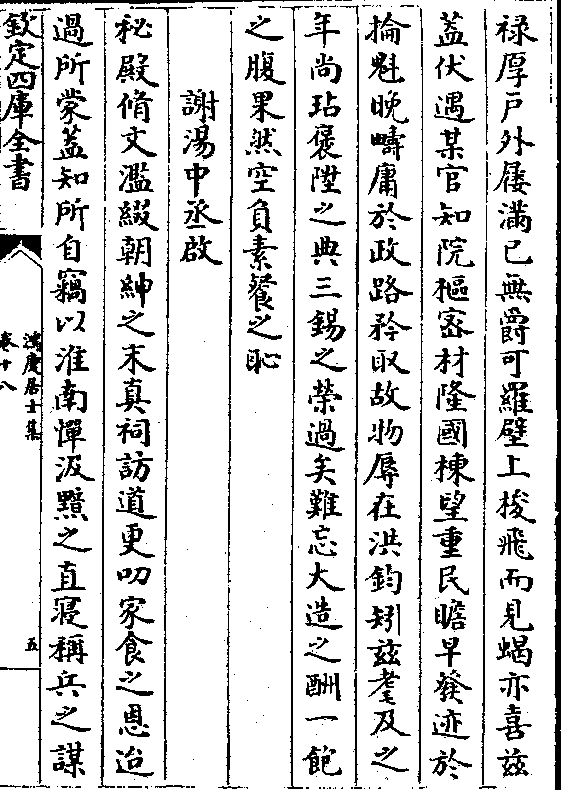 禄厚戸外屦滿已無爵可羅壁上梭飛而見蝎亦喜兹
蓋伏遇某官知院樞宻材隆國棟望重民瞻早發迹於
掄魁晚疇庸於政路矜取故物辱在洪鈞矧兹耄及之
年尚玷褒陞之典三錫之榮過矣難忘大造之酬一飽
之腹果然空負素餐之恥
謝湯中丞啟
秘殿脩文濫綴朝紳之末真祠訪道更叨家食之恩迨
過所蒙蓋知所自竊以淮南憚汲黯之直寝稱兵之謀
欽定四庫全書
鴻慶居士集
卷十八
五